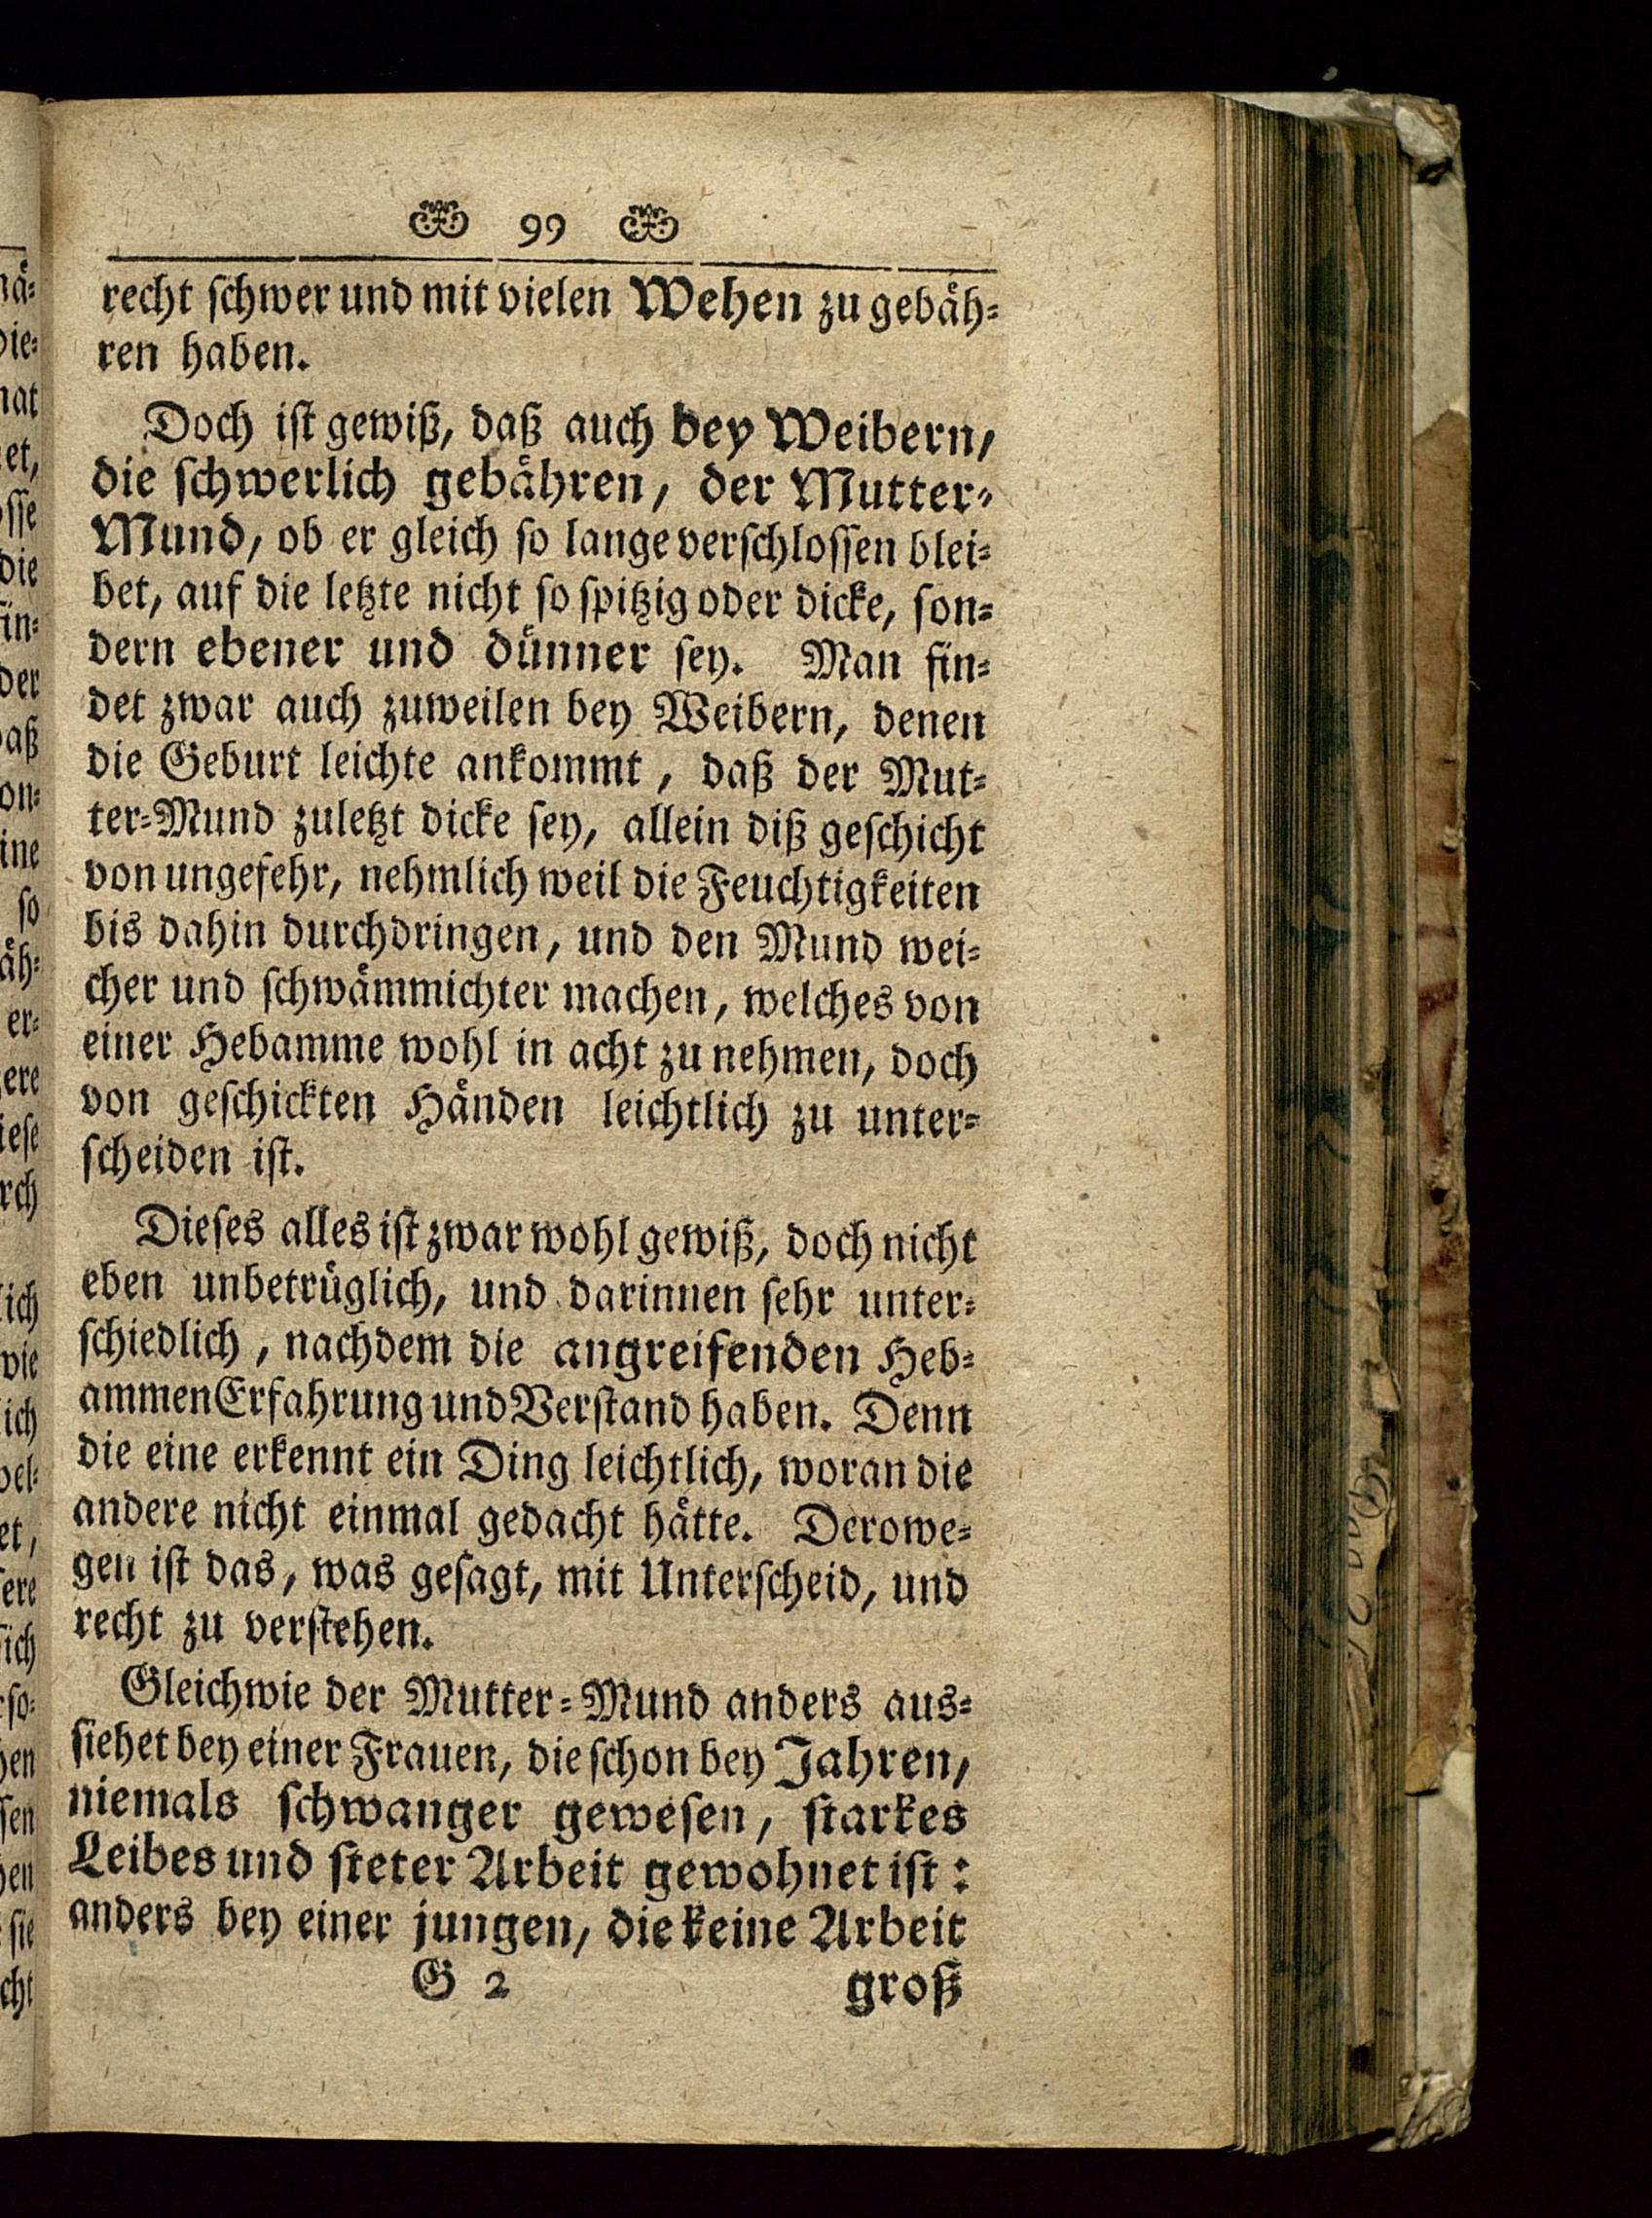 99
recht schwer und mit vielen Wehen zu gebäh-
ren haben.
Doch ist gewiß, daß auch bey Weibern,
die schwerlich gebähren, der Mutter-
Mund, ob er gleich so lange verschlossen blei-
bet, auf die letzte nicht so spitzig oder dicke, son-
dern ebener und dünner sey. Man fin-
det zwar auch zuweilen bey Weibern, denen
die Geburt leichte ankommt, daß der Mut-
ter-Mund zuletzt dicke sey, allein diß geschicht
von ungefehr, nehmlich weil die Feuchtigkeiten
bis dahin durchdringen, und den Mund wei-
cher und schwämmichter machen, welches von
einer Hebamme wohl in acht zu nehmen, doch
von geschickten Händen leichtlich zu unter-
scheiden ist.
Dieses alles ist zwar wohl gewiß, doch nicht
eben unbetrüglich, und darinnen sehr unter-
schiedlich, nachdem die angreifenden Heb-
ammen Erfahrung und Verstand haben. Denn
die eine erkennt ein Ding leichtlich, woran die
andere nicht einmal gedacht hätte. Derowe-
gen ist das, was gesagt, mit Unterscheid, und
recht zu verstehen.
Gleichwie der Mutter-Mund anders aus-
siehet bey einer Frauen, die schon bey Jahren,
niemals schwanger gewesen, starkes
Leibes und steter Arbeit gewohnet ist:
anders bey einer jungen, die keine Arbeit
G 2 groß